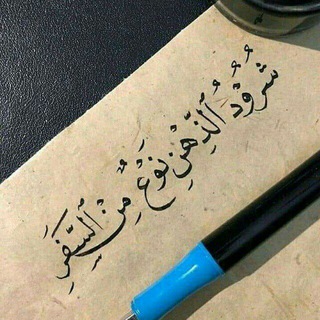 شُرُودُ ٱلذِّهْنِ نَوْعٌ مِنَ ٱلسَّفَرِ